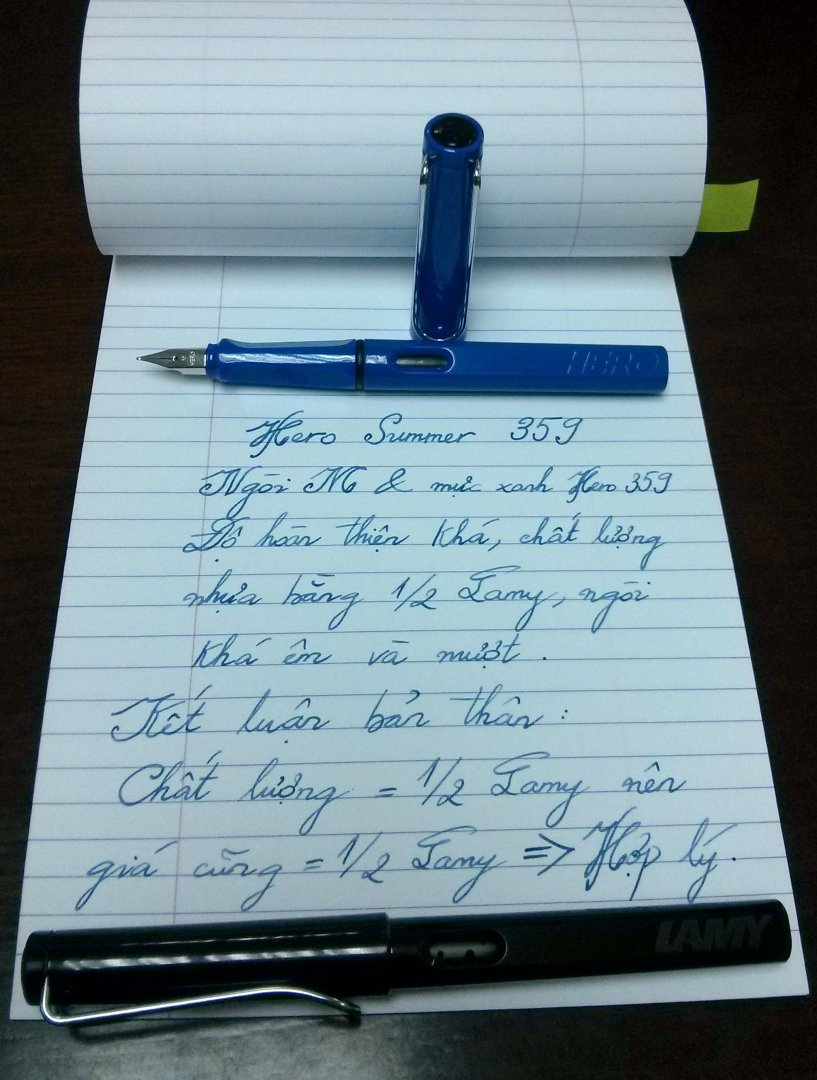 HERO
HERO
Hero Summer 359
Ngòi M & mực xanh Hero 359
Độ hoàn thiện khá, chất lượng
nhựa bằng 1/2 Lamy, ngòi
khá êm và mượt.
Kết luận bản thân:
Chất lượng = 1/2 Lamy nên
giá cũng = 1/2 Lamy => Hợp lý.
LAMY